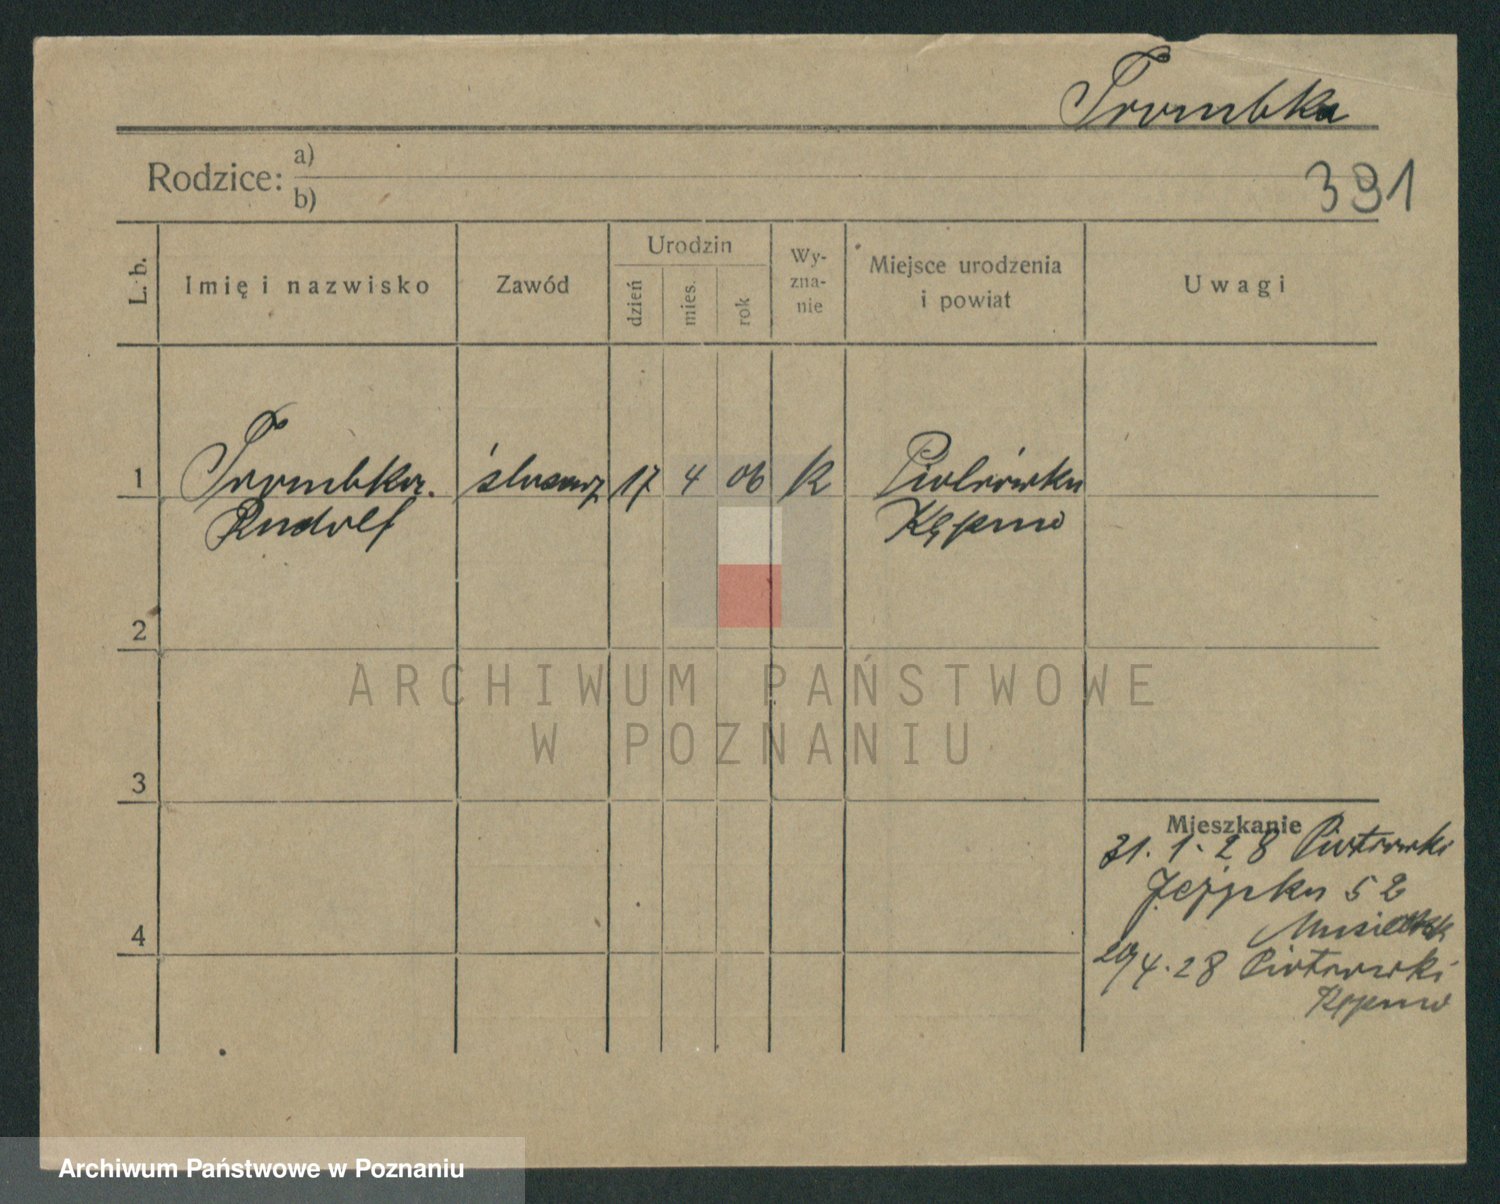 Trombka
Rodzice: a)
b)
391
L. b.
Imię i nazwisko
Zawód
Urodzin
dzień
mies.
rok
Wy-
zna-
nie
Miejsce urodzenia
i powiat
Uwagi
1 Trombka ślusarz 17 4 06 k
Rudolf Kępno
2
3
4
Mieszkanie
31. 1. 28 Piotrowski
52
20/4.28 Piotrowski
Kępno
ARCHIWUM PAŃSTWOWE
W POZNANIU
Archiwum Państwowe w Poznaniu